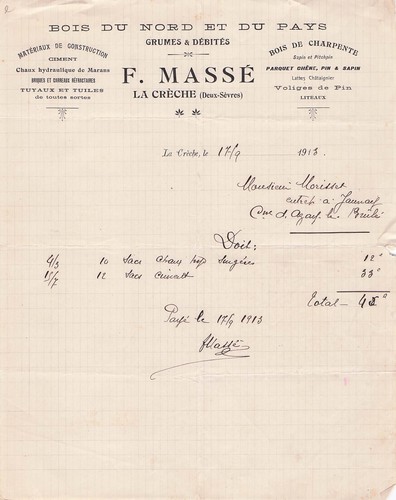 2
BOIS DU NORD ET DU PAYS
GRUMES & DÉBITÉS
MATÉRIAUX DE CONSTRUCTION
CIMENT
Chaux hydraulique de Marans
BRIQUES ET CARREAUX RÉFRACTAIRES
TUYAUX ET TUILES
de toutes sortes
F. MASSÉ
LA CRÈCHE (Deux-Sèvres)
BOIS DE CHARPENTE
Sapin et Pitchpin
PARQUET CHÊNE, PIN & SAPIN
Lattes Châtaignier
Voliges de Pin
LITEAUX
La Crèche, le 17/9 1913
Monsieur Morisset
entrep à Jaunay
Cne d'Azay le Brûlé
Doit:
4/3 10 Sacs Chaux 12 "
17/7 12 Sacs Ciment 33 "
Total - 45 "
Payé le 17/9 1913
FMassé